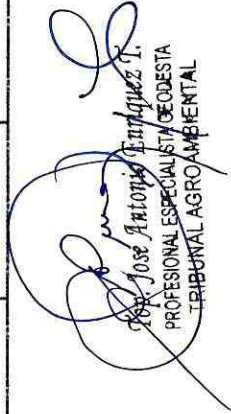 Top. José Antonio Enriquez T.
PROFESIONAL ESPECIALISTA GEODESTA
TRIBUNAL AGROAMBIENTAL